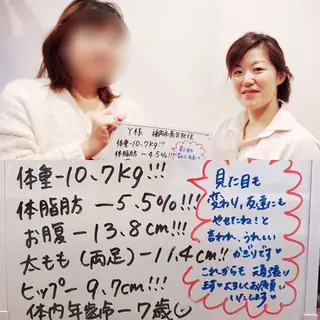 Y様 福岡市南区在住
体重-10.7kg!!!
体脂肪-4.5%!!!
体重-10.7kg!!!
体脂肪-5.5%!!!
お腹-13.8cm!!!
太もも(両足)-11.4cm!!
ヒップ-9.7cm!!!
体内年齢-7歳
見た目も
変わり、友達にも
やせたね!と
言われ、うれしい
かぎりです♥
これからも頑張り
ます♥よろしくお願い
いたします♥